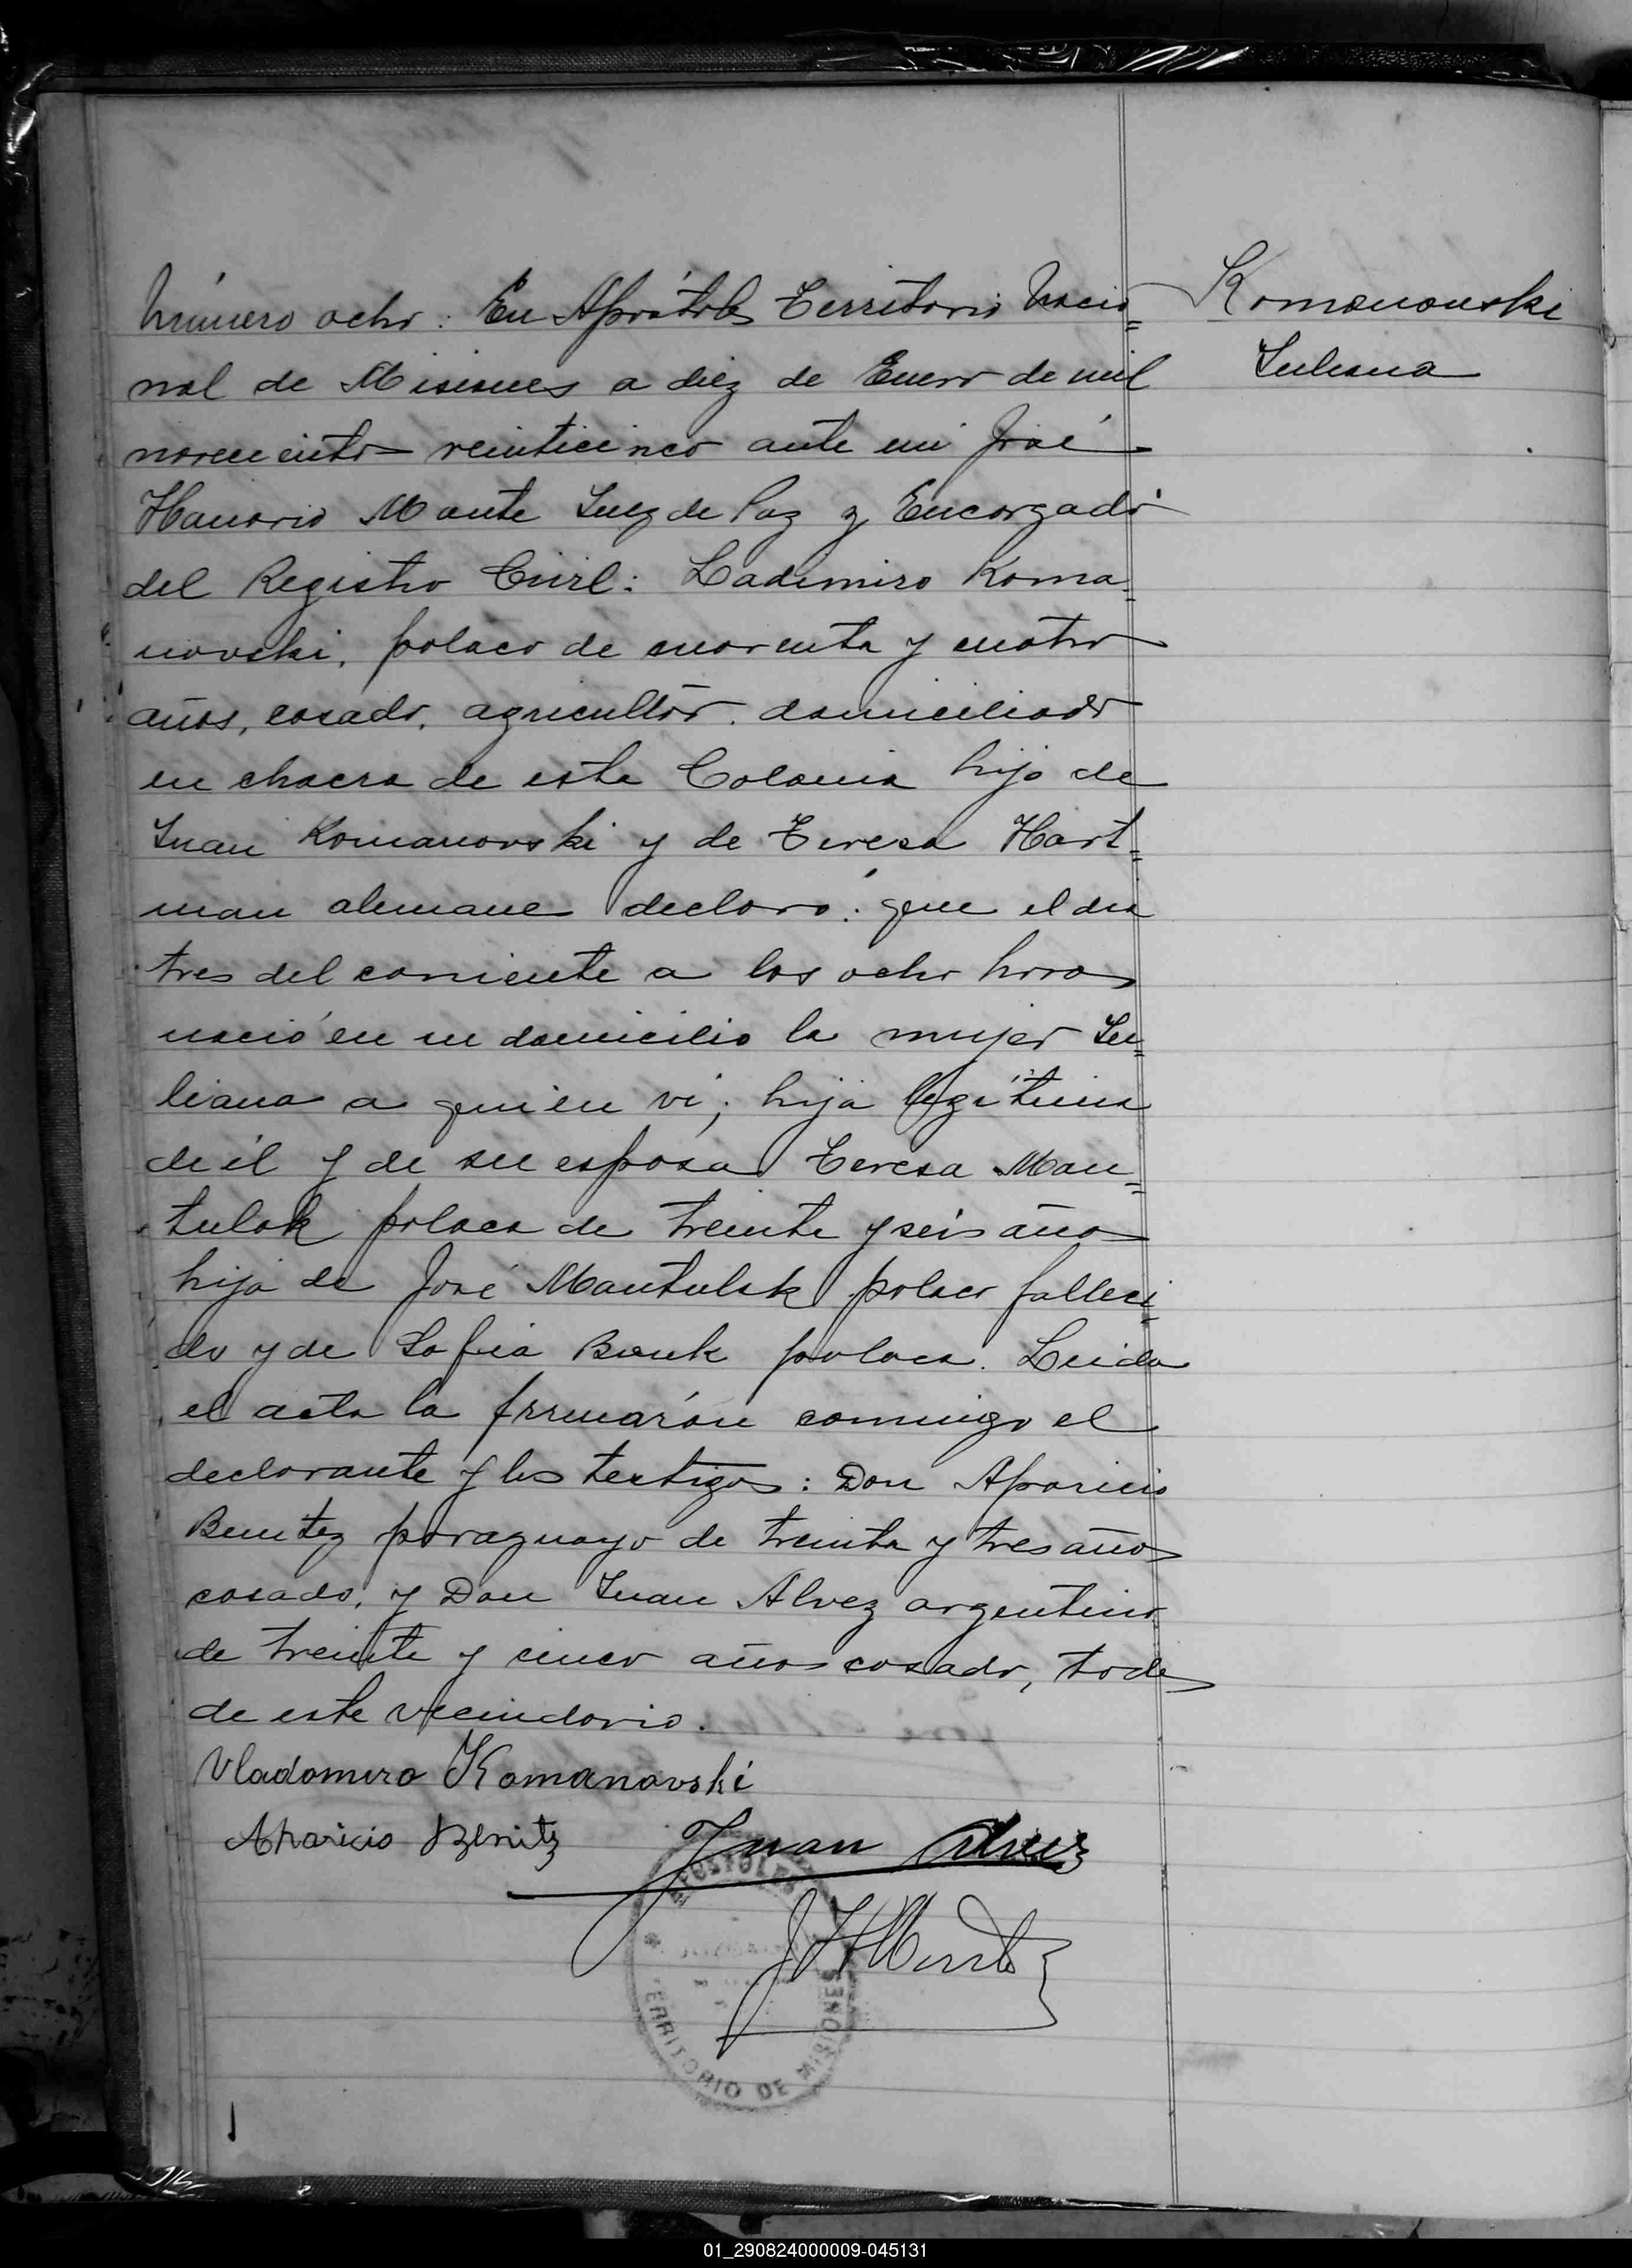 Número ocho: En Apóstoles Territorio Nacio=
nal de Misiones a diez de Enero de mil
novecientos veinticinco ante mi José
Honorio Monte Juez de Paz y Encargado
del Registro Civil: Ladimiro Koma=
novski, polaco de cuarenta y cuatro
años, casado, agricultor, domiciliado
en chacra de esta Colonia hijo de
Juan Komanovski y de Teresa Hart=
man alemanes declaró: que el dia
tres del corriente a las ocho horas
nació en su domicilio la mujer Ju=
liana a quien vi; hija legítima
de él y de su esposa Teresa Man=
tulak polaca de treinta y seis años
hija de José Mantulak polaco falleci=
do y de Sofia polaca. Leida
el acta la firmarón conmigo el
declarante y los testigos: Don Aparicio
Benitez paraguayo de treinta y tres años
casado, y Don Juan Alvez argentino
de treinta y cinco años casado, todos
de este vecindario.
Vladomiro Komanovski
Aparicio Benitz Juan Alvez
APOSTOLES
TERRITORIO DE MISIONES
Komanouski
Juliana
01_290824000009-045131